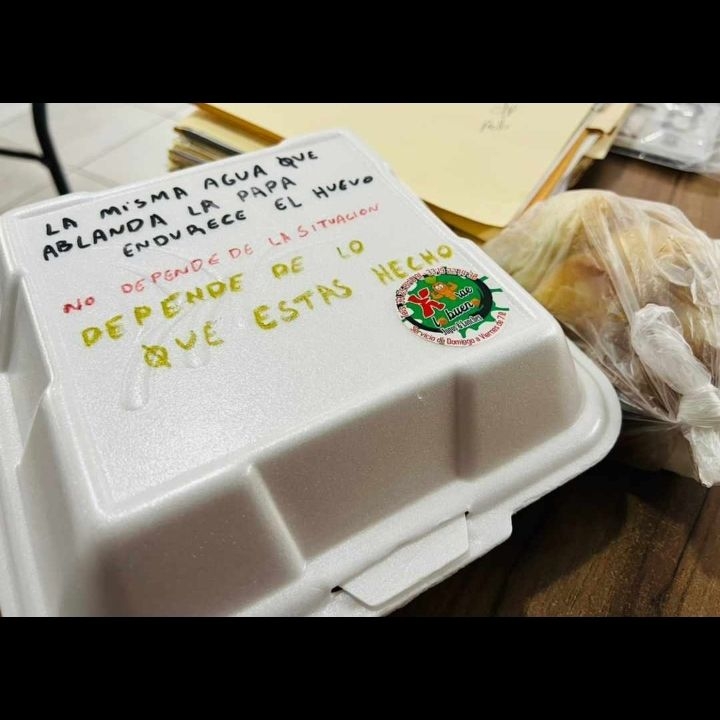 LA MISMA AGUA QUE
ABLANDA LA PAPA
ENDURECE EL HUEVO
NO DEPENDE DE LA SITUACION
DEPENDE DE LO
QUE ESTAS HECHO
buen
Servicio de Domingo a Viernes de 7